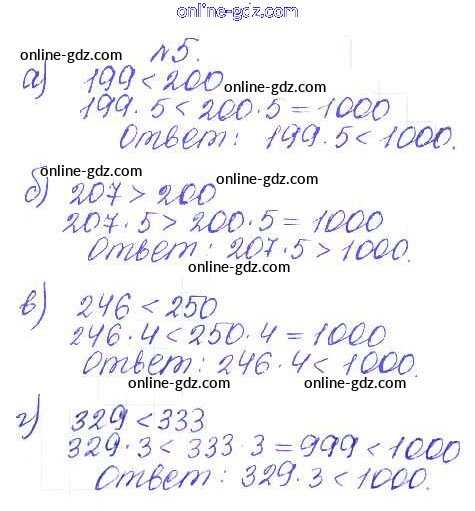 online-gdz.com
№5.
online-gdz.com
а) 199 < 200
online-gdz.com
199 · 5 < 200 · 5 = 1000
Ответ: 199 · 5 < 1000.
online-gdz.com
online-gdz.com
б) 207 > 200
207 · 5 > 200 · 5 = 1000
Ответ: 207 · 5 > 1000.
online-gdz.com
online-gdz.com
в) 246 < 250
246 · 4 < 250 · 4 = 1000
Ответ: 246 · 4 < 1000.
online-gdz.com
online-gdz.com
г) 329 < 333
329 · 3 < 333 · 3 = 999 < 1000
Ответ: 329 · 3 < 1000.
online-gdz.com